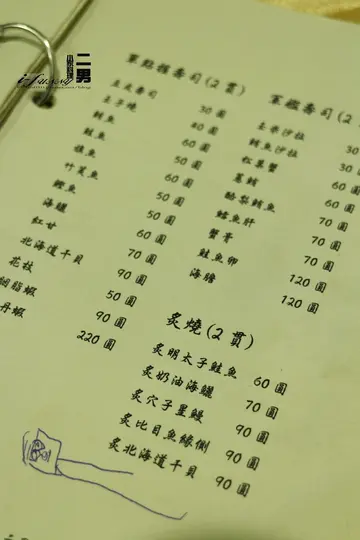 二男
i-Funny
單點握壽司(2貫)
豆皮壽司 30圓
玉子燒 40圓
鮪魚 60圓
鮭魚 50圓
旗魚 60圓
竹莢魚 50圓
鰹魚 50圓
海鱺 60圓
紅甘 70圓
北海道干貝 90圓
花枝 50圓
胭脂蝦 90圓
丹蝦 220圓
軍艦壽司(2
玉米沙拉 30
鮪魚沙拉 30
紅星蟹 30
蔥鮪 60
酪梨鮪魚 60圓
鱈魚肝 70圓
蟹膏 70圓
鮭魚卵 120圓
海膽 120圓
炙燒(2貫)
炙明太子鮭魚 60圓
炙奶油海鱺 70圓
炙穴子星鰻 90圓
炙比目魚緣側 90圓
炙北海道干貝 90圓